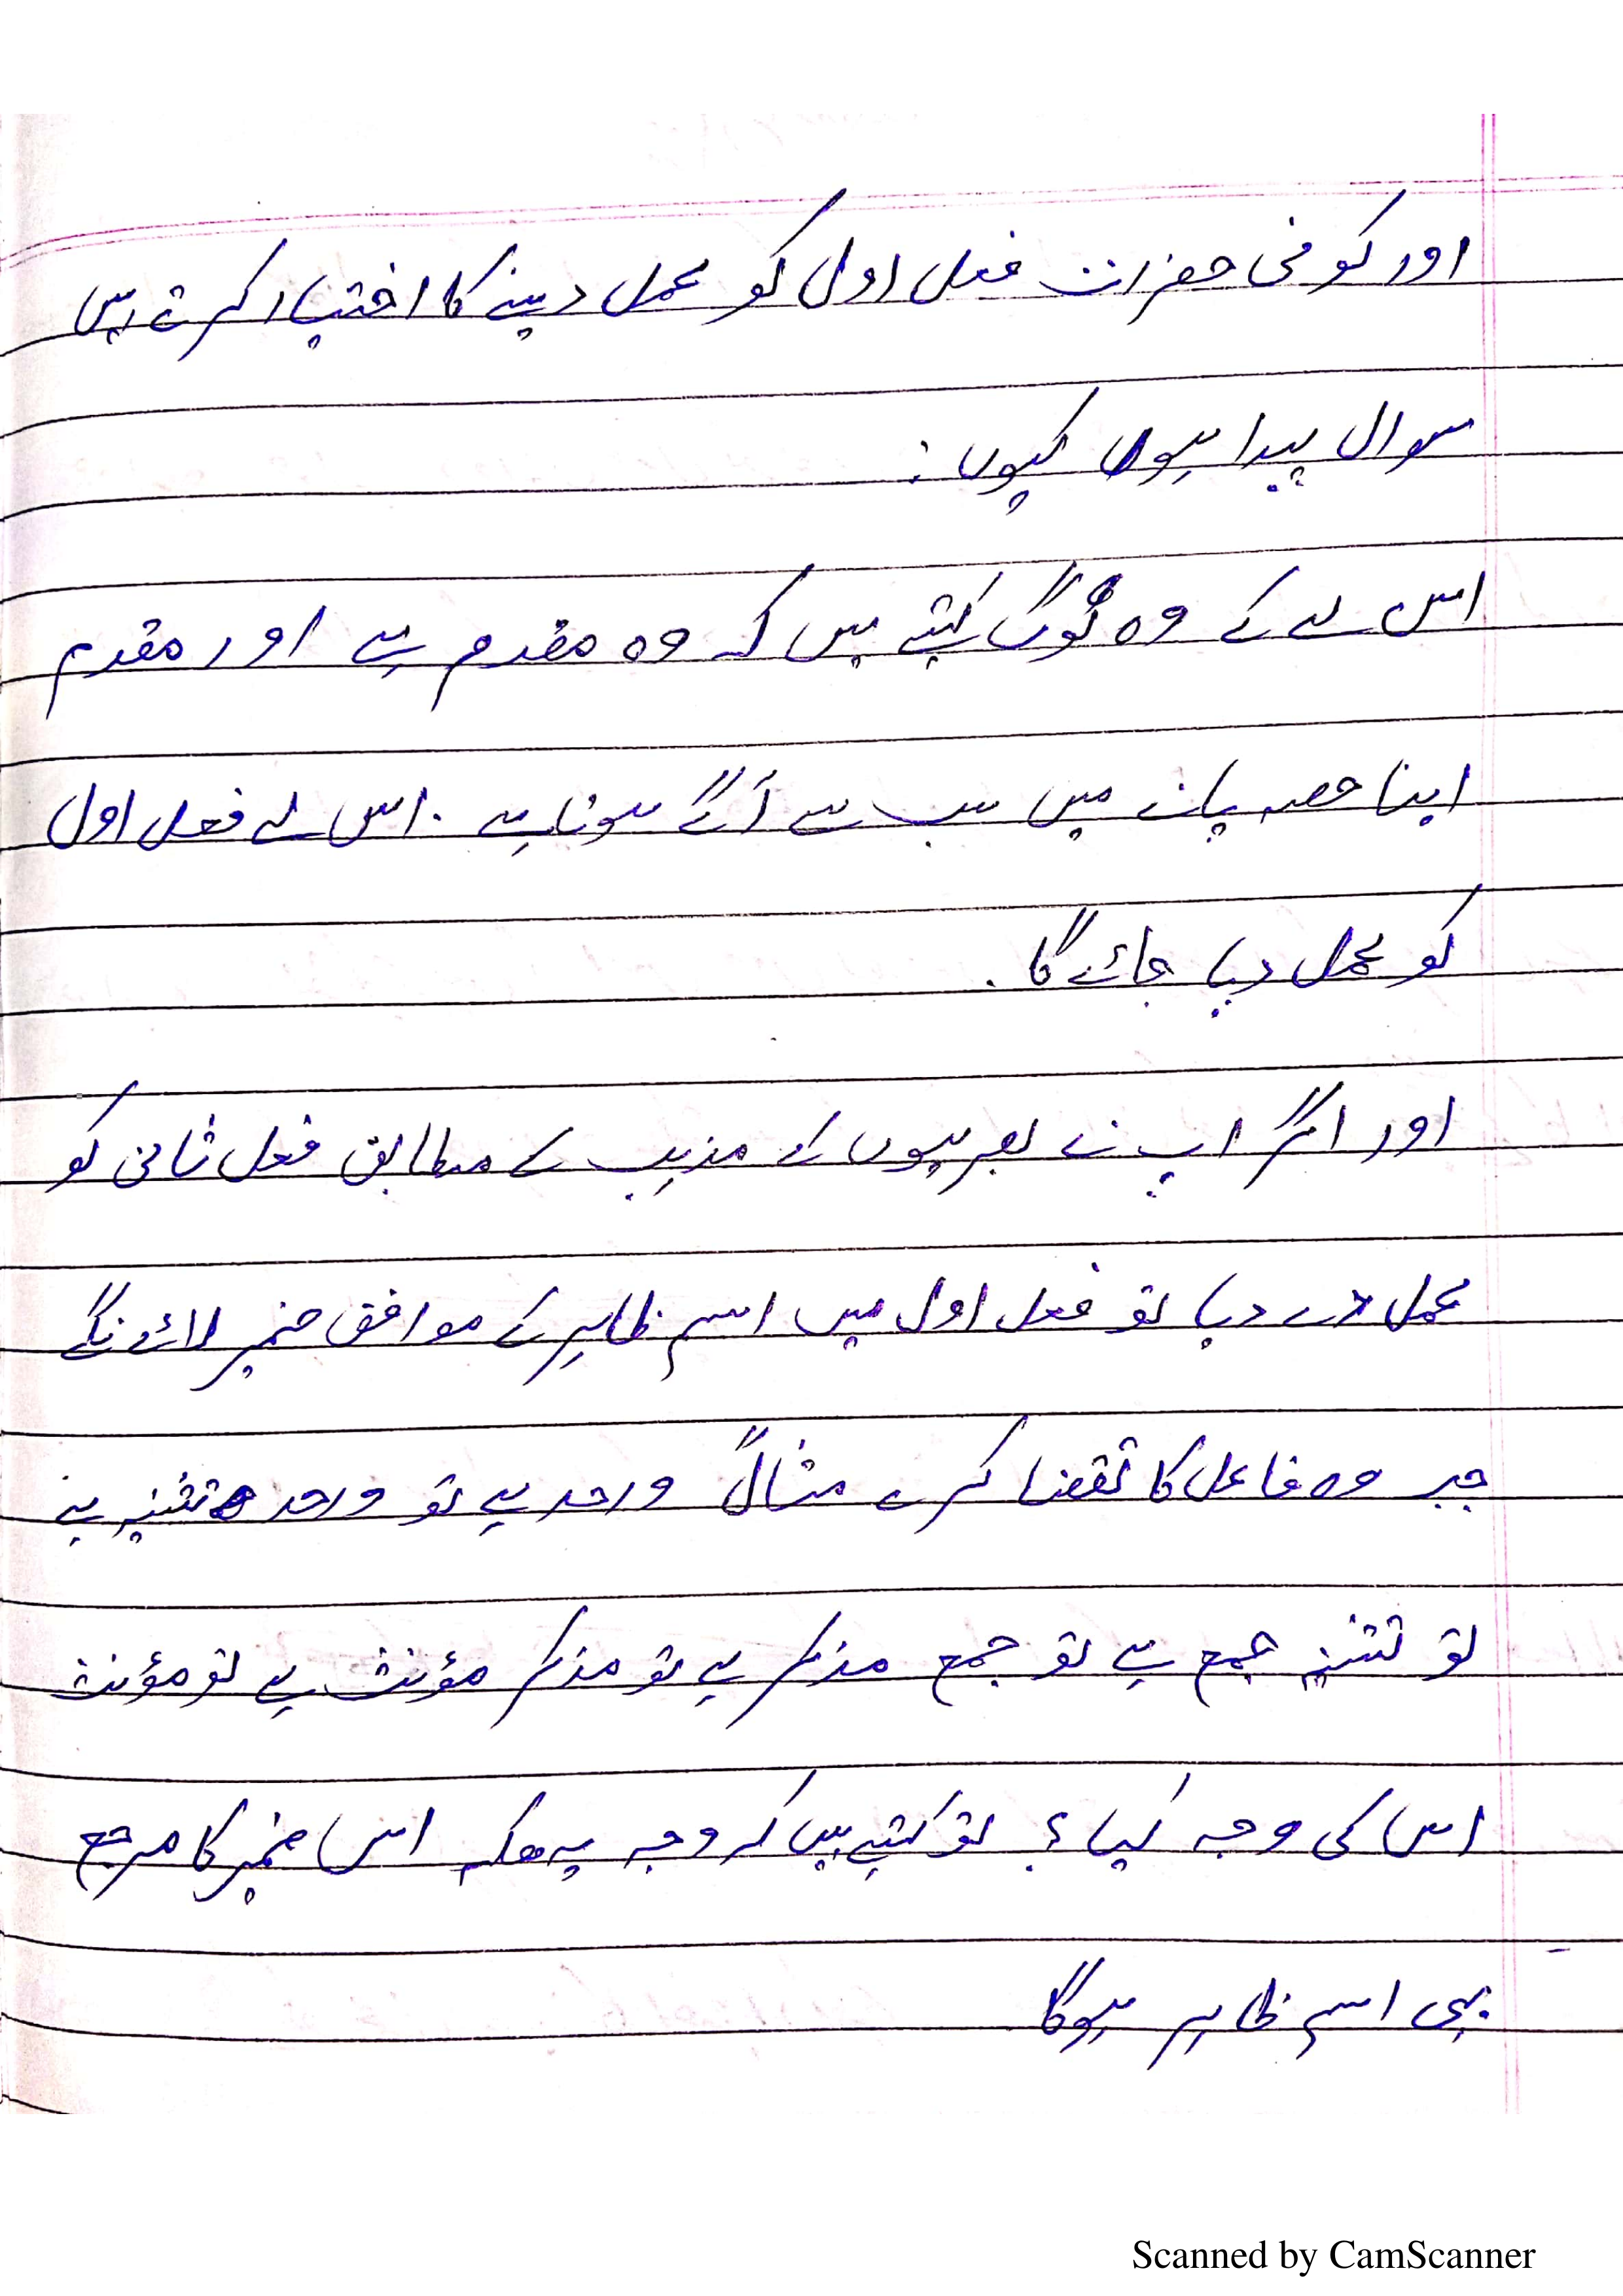 اور کوفی حضرات فعل اول کو عمل دینے کا اختیار کرتے ہیں
سوال پیدا ہوا کیوں :
اس لے کے وہ لوگ کہتے ہیں کہ وہ مقدم ہے اور مقدم
اپنا حصہ پانے میں سب سے آگے ہوتا ہے . اس لے فعل اول
کو عمل دیا جائے گا .
اور اگر اپ نے بصریوں کے مذہب کے مطابق فعل ثانی کو
عمل دے دیا تو فعل اول میں اسم ظاہر کے موافق ضمیر لائے نگے
جب وہ فاعل کا تقضا کرے مثالً واحد ہے تو واحد تثنیہ ہے
تو تثنیہ جمع ہے تو جمع مذکر ہے تو مذکر مؤنث ہے تو مؤنث
اس کی وجہ کیا ؟ تو کہتے ہیں کہ وجہ یہ ھیکہ اس ضمیر کا مرجع
یہی اسم ظاہر ہوگا
Scanned by CamScanner